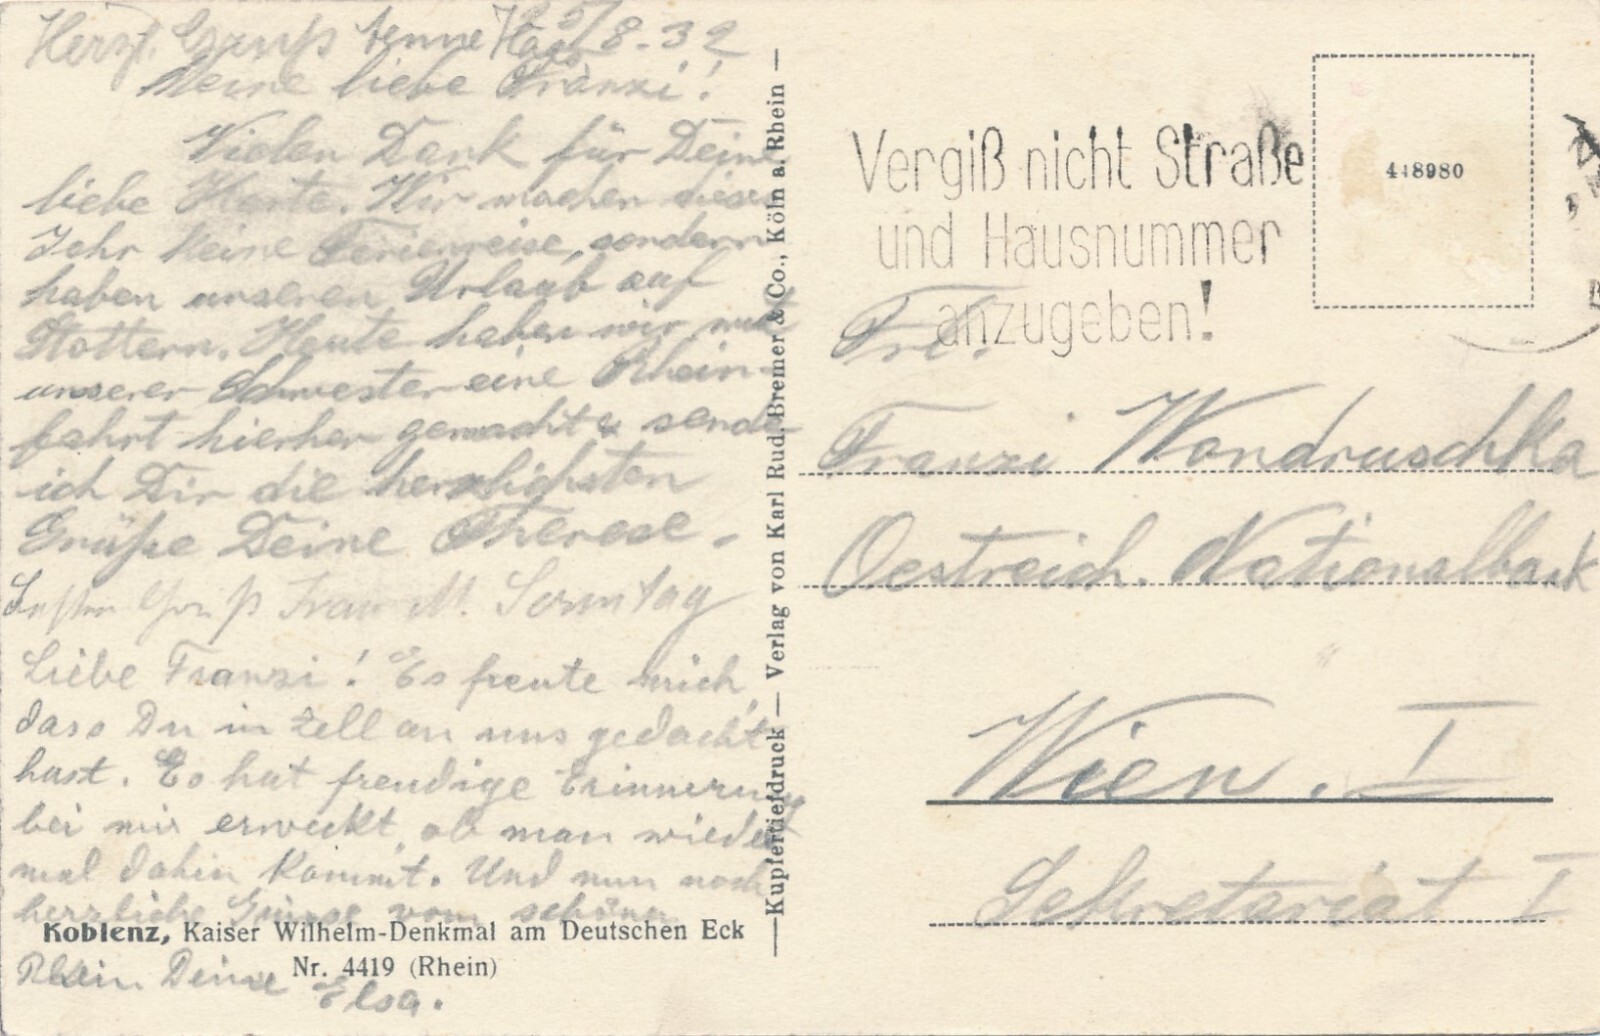 Herzl. Gruß 25/8.32
Meine liebe Franzi!
Vielen Dank für Deine
liebe Karte. Wir machen dieses
Jahr keine Ferienreise, sondern
haben unseren Urlaub auf
Stottern. Heute haben wir mit
unserer Schwester eine Rhein-
fahrt hierher gemacht & sende
ich Dir die herzlichsten
Grüße Deine Therese.
Gruß Frau M. Sonntag
Liebe Franzi! Es freute mich,
dass Du in Zell an uns gedacht
hast. Es hat freudige Erinnerung
bei mir erweckt, ob man wieder
mal dahin kommt. Und nun noch
herzliche Grüsse vom schönen
Rhein Deine Elsa.
Koblenz, Kaiser Wilhelm-Denkmal am Deutschen Eck
Nr. 4419 (Rhein)
Kupfertiefdruck — Verlag von Karl Rud. Bremer & Co., Köln a. Rhein —
Vergiß nicht Straße
und Hausnummer
anzugeben!
448980
Frl.
Franzi Wondruschka
Oestreich. Nationalbank
Wien. I
Sekretariat I